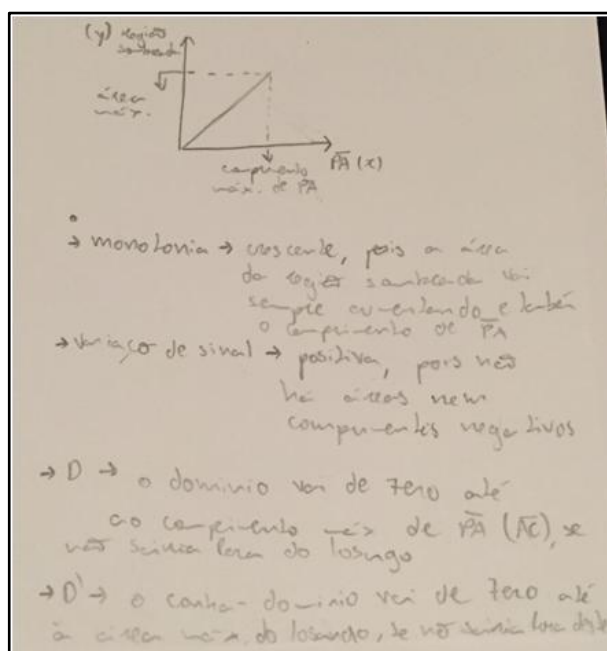 (y) região
sombreada
área
máx.
PA (x)
comprimento
máx. de PA
→ monotonia → crescente, pois a área
da região sombreada vai
sempre aumentando e também
o comprimento de PA
→ variação de sinal → positiva, pois não
há áreas nem
comprimentos negativos
→ D → o domínio vai de zero até
ao comprimento máx de PA (AC), se
não sairia fora do losango
→ D' → o contra-domínio vai de zero até
à área máx. do losango, se não sairia fora deste